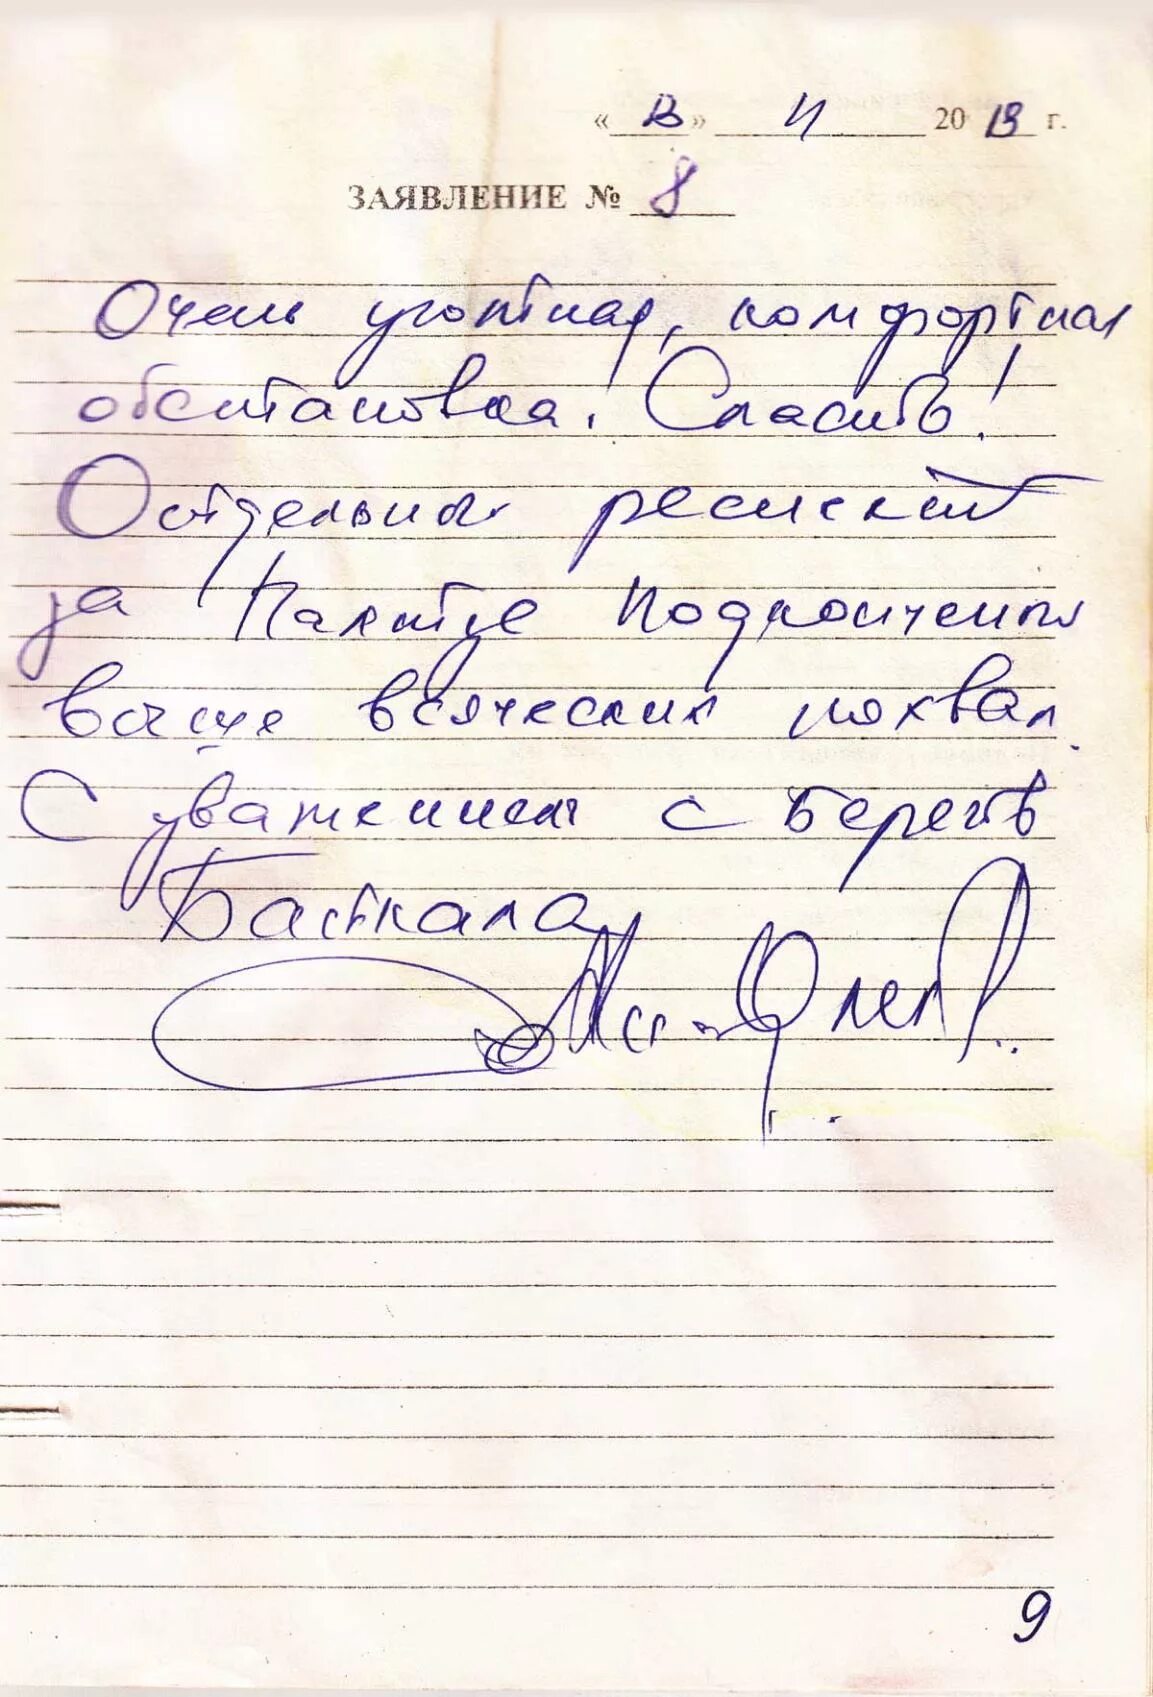 « 13 » 11 2013 г.
ЗАЯВЛЕНИЕ № 8
Очень уютная, комфортная
обстановка! Спасибо!
Отдельный респект
за
выше всяческих похвал.
С уважением с берегов
Байкала
Олег
9